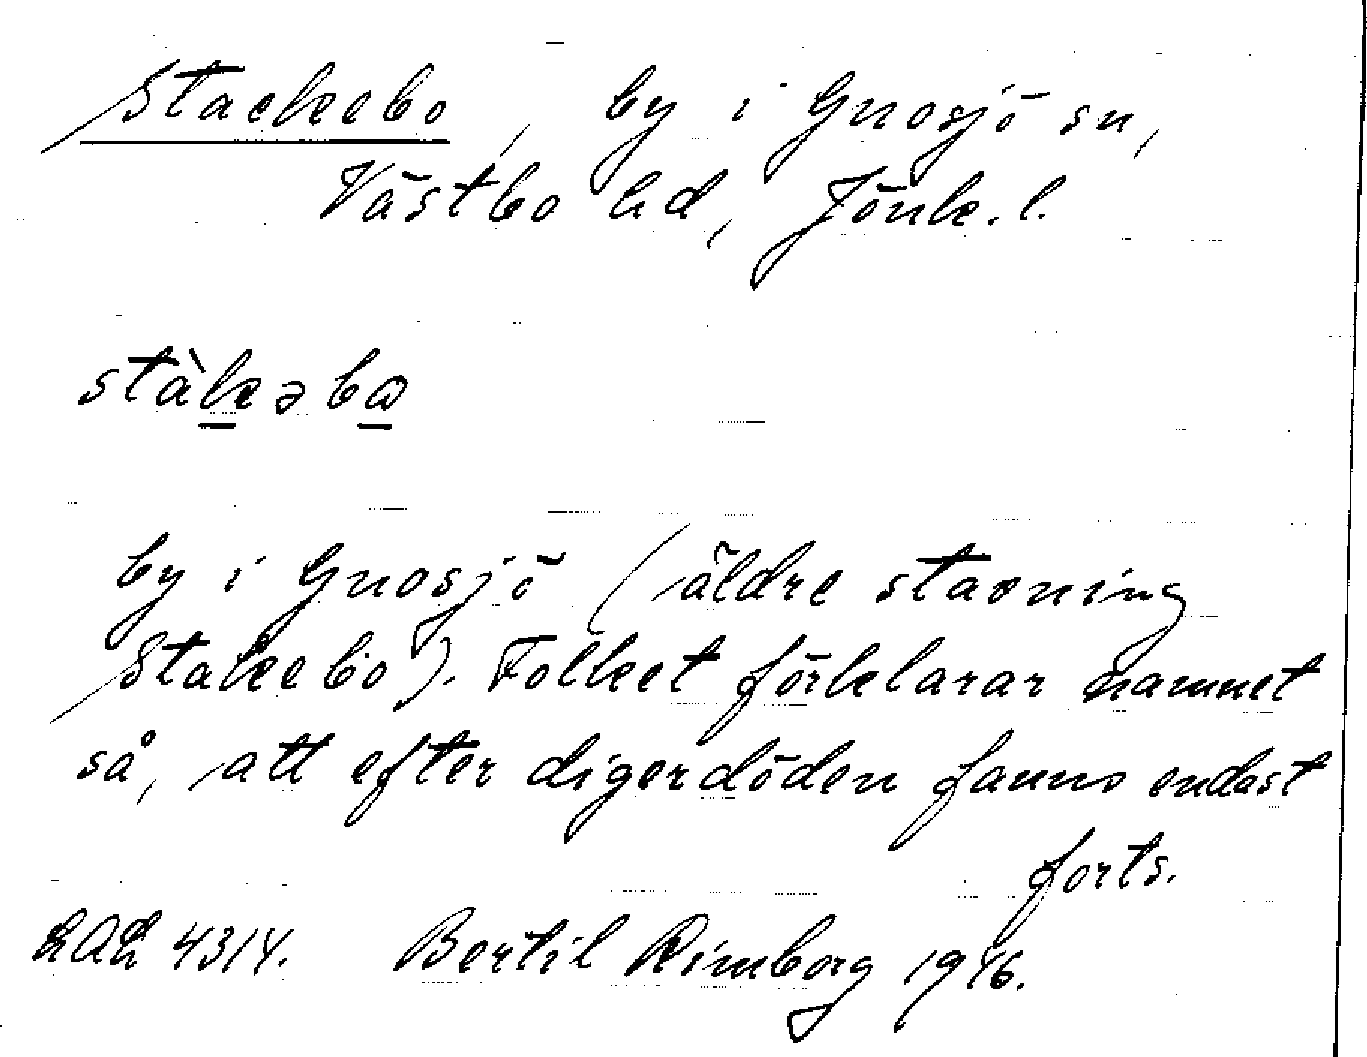 Stackebo, by i Gnosjö sn,
Västbo hd, Jönk. l.
stàkəbω
by i Gnosjö (äldre stavning
Stakebo). Folket förklarar namnet
så, att efter digerdöden fanns endast
forts.
LAL 4314. Bertil Rimborg 1946.